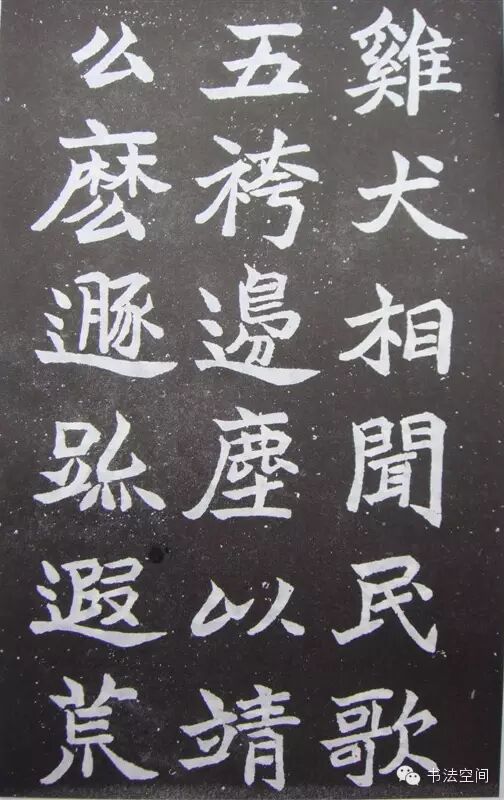 雞犬相聞民歌
五袴邊塵以靖
么麼遯跡遐荒
书法空间